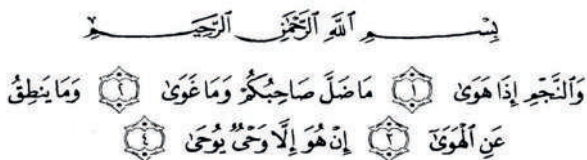 بِسْمِ اللَّهِ الرَّحْمَٰنِ الرَّحِيمِ
وَالنَّجْمِ إِذَا هَوَىٰ ۝١ مَا ضَلَّ صَاحِبُكُمْ وَمَا غَوَىٰ ۝٢ وَمَا يَنطِقُ
عَنِ الْهَوَىٰ ۝٣ إِنْ هُوَ إِلَّا وَحْيٌ يُوحَىٰ ۝٤